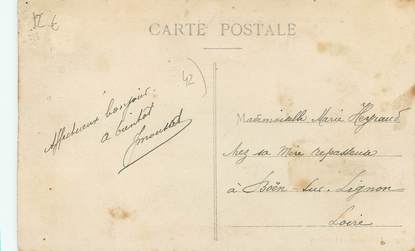 12 €
CARTE POSTALE
42
Affectueux bonjour
a bientot
Mademoiselle Marie Heyraud
chez sa Mère repasseuse
à Boën-sur-Lignon
Loire